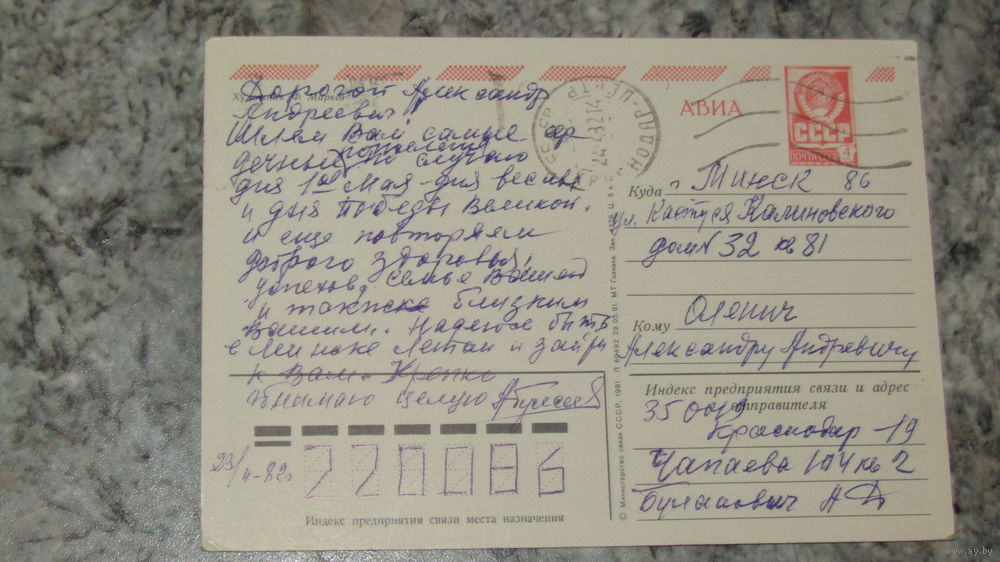 Дорогой Александр
Андреевич!
Шлем Вам самые сер
дечный по случаю
дня 1го Мая - дня весны
и дня Победы Великой.
и еще повторяем
доброго здоровья,
успехов, семье Вашей
и также близким
Вашим. Надеюсь быть
в Минске летом и зайти
к Вам. Крепко
обнимаю целую
23/4-82г
220086
Индекс предприятия связи места назначения
АВИА
СССР
ПОЧТА
4
Куда г. Минск 86
ул. Кастуся Калиновского
дом № 32 кв 81
Кому Оленич
Александру Андреевичу
Индекс предприятия связи и адрес
отправителя
350019
Краснодар - 19
Чапаева 104 кв 2
© Министерство связи СССР. 1981. 29.05.81. МТ Гознака.
www.ay.by